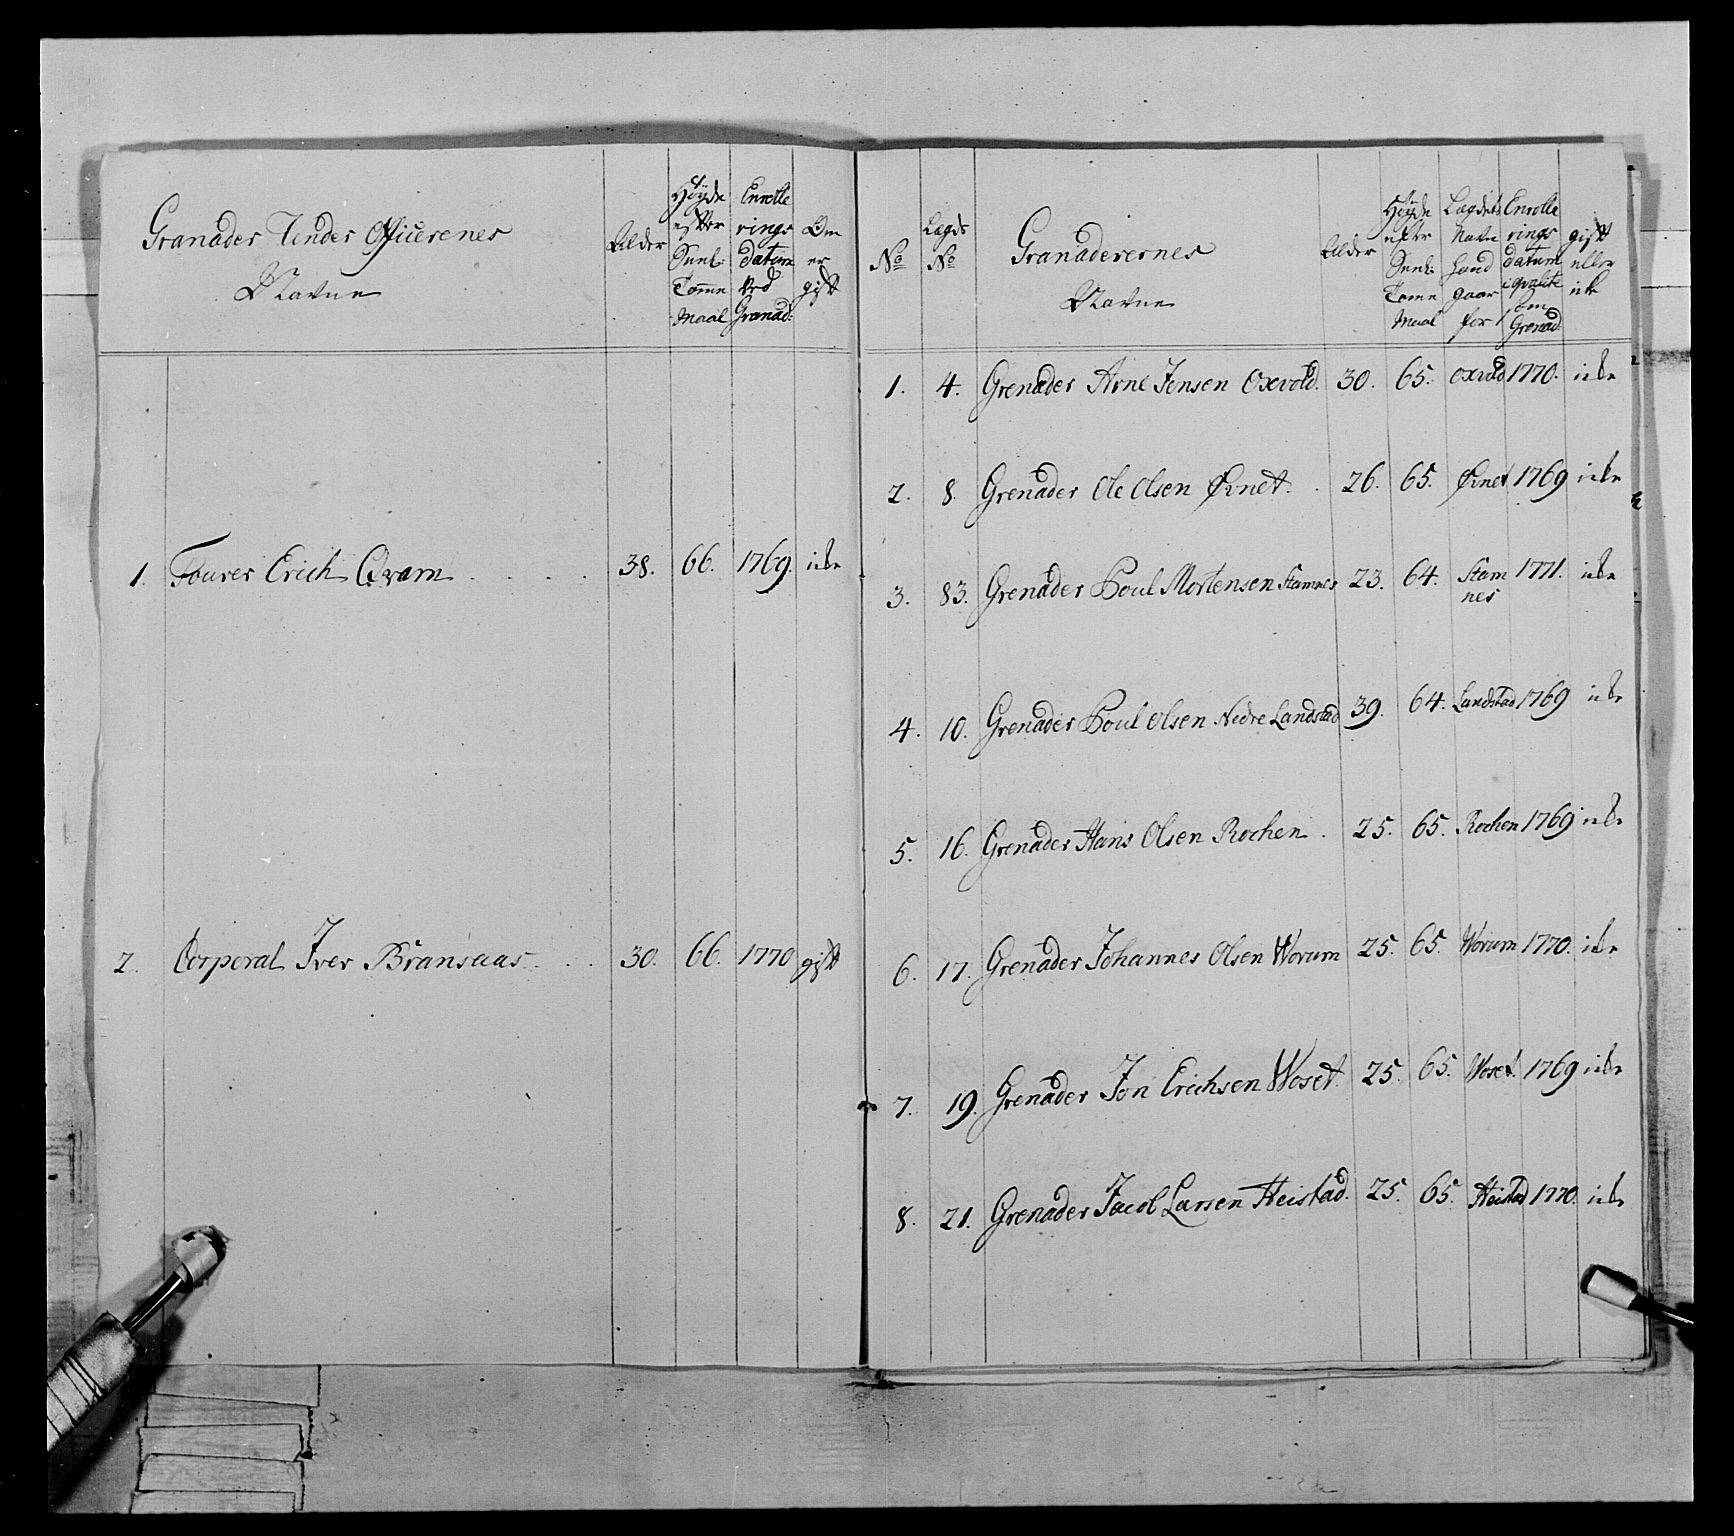 Granader Under Officerenes
Navne
Alder
Høyde
efter
Tomme
Maal
Enrolle
rings
datum
ved
Granad:
Om
er
gift
1. Fourer Erich Qvam . . . . . 38. 66. 1769. icke
2. Corporal Iver Bransaas . . . 30. 66. 1770 gift
No
Lægds
No
Granaderernes
Navne
Alder
Høyde
efter
Tome
Maal
Lægdets
Navn
hand
gaar
for
Enrolle
rings
datum
som
Grenad:
gift
eller
icke
1. 4. Grenader Arne Jensen Oxvold. 30. 65. Oxvold 1770. icke
2. 8. Grenader Ole Olsen Øvnet. . 26. 65. Øvnet 1769 icke
3. 83. Grenader Poul Mortensen Stamnes 23. 64. Stam
nes 1771. icke
4. 10. Grenader Poul Olsen Nedre Landstad 39. 64. Landstad 1769 icke
5. 16. Grenader Hans Olsen Rochen . 25. 65. Rochen 1769 icke
6. 17. Grenader Johannes Olsen Worum 25. 65. Worum 1770. icke
7. 19. Grenader Jon Erichsen Woset. 25. 65. Woset. 1769 icke
8. 21. Grenader Jacob Larsen Heistad. 25. 65. Heistad 1770. icke